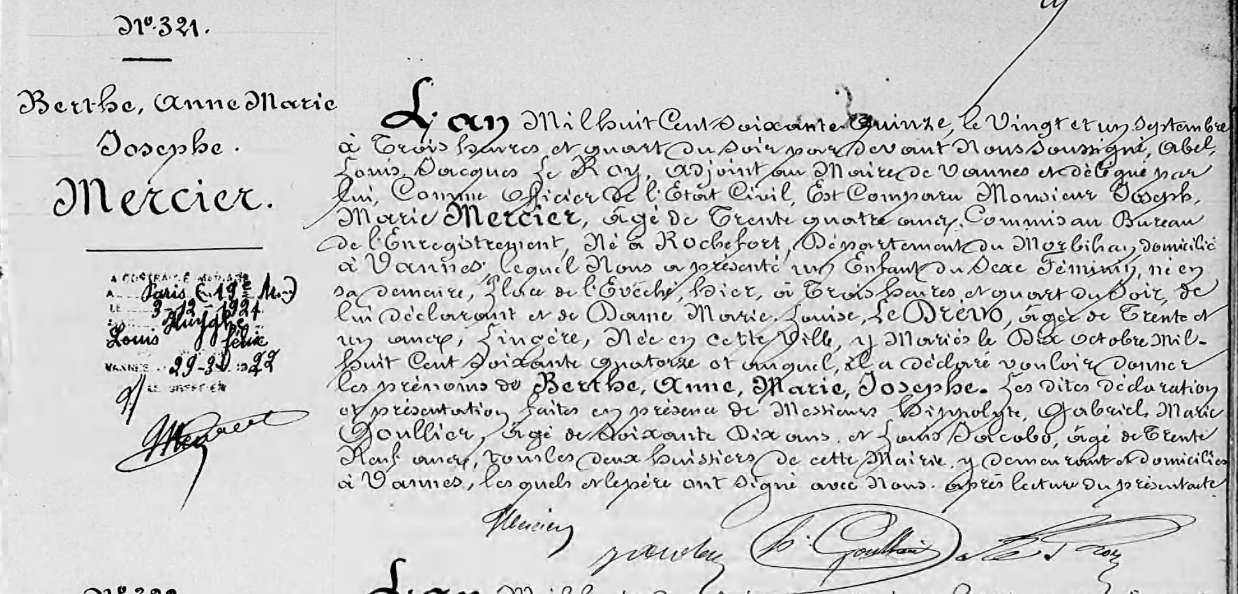 N° 321.
Berthe, Anne Marie
Josephe.
Mercier.
A CONTRACTÉ MARIAGE
A Paris (19e
LE 3-12-1921
Louis Huyghe
Félix
VANNES
LE GREFFIER
L'an Mil huit Cent Soixante Quinze, le Vingt et un Septembre
à Trois heures et quart du Soir par devant Nous soussigné, Abel,
Louis, Jacques Le Roy, adjoint au Maire de Vannes et délégué par
lui, Comme Officier de l'Etat Civil, Est Comparu Monsieur Joseph,
Marie Mercier, âgé de Trente quatre ans, Commis au Bureau
de l'Enregistrement, Né à Rochefort, Département du Morbihan, domicilié
à Vannes, lequel Nous a présenté un Enfant du Sexe Féminin, né en
sa demeure, Place de l'Evêché, hier, à Trois heures et quart du Soir, de
lui déclarant et de Dame Marie, Louise, Le Drevo, âgée de Trente et
un ans, Lingère, Née en cette Ville, y Mariés le Dix octobre Mil-
huit Cent Soixante quatorze et auquel, il a déclaré vouloir donner
les prénoms de Berthe, Anne, Marie, Josephe. Les dites déclaration
et présentation faites en présence de Messieurs Hippolyte, Gabriel, Marie
Goullier, âgé de Soixante Dix ans, et Louis Jacobo, âgé de Trente
Neuf ans, tous les deux huissiers de cette Mairie, y demeurant et domiciliés
à Vannes, les quels et le père ont Signé avec Nous, après lecture du présent acte
Mercier
h. Goullier
Le Roy
N° 322
L'an Mil huit